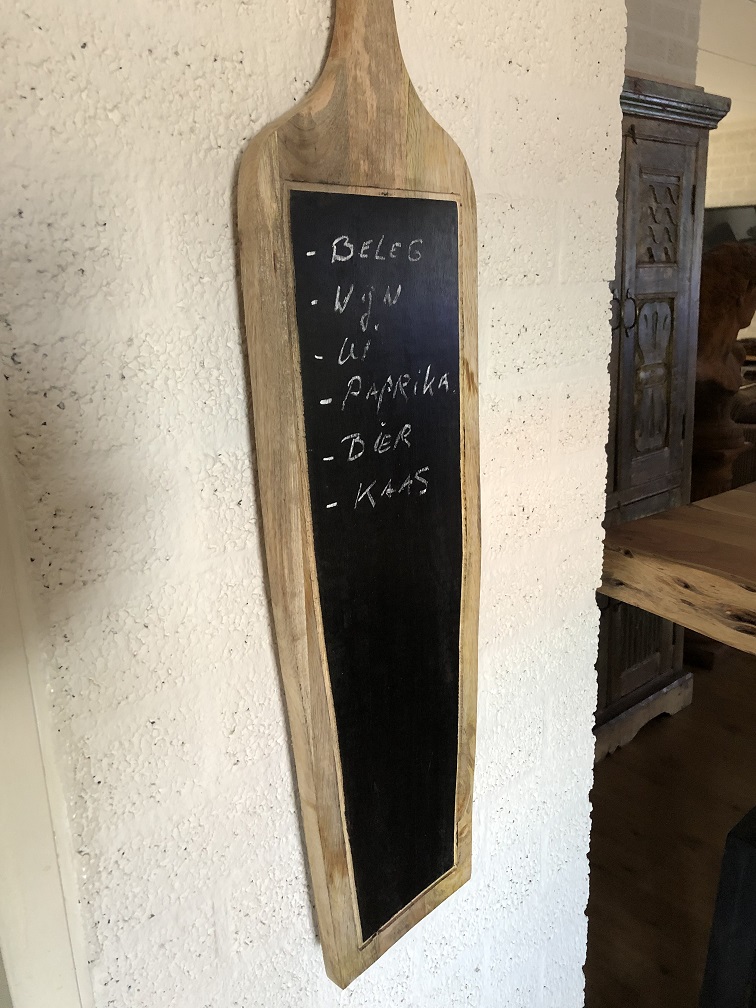 - BELEG
- WijN
- Ui
- PAPRiKA
- BiER
- KAAS